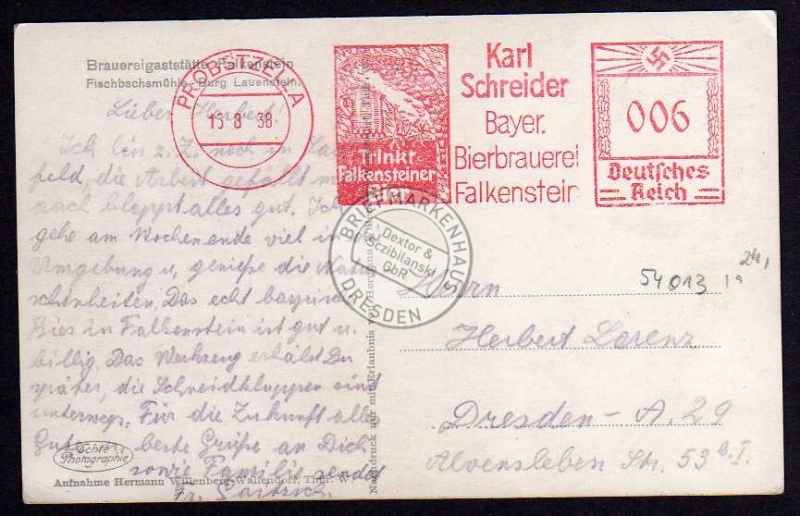 Brauereigaststätte Falkenstein
Fischbachsmühle, Burg Lauenstein.
PROBSTZELLA
15 8 38
Trinkt
Falkensteiner
Karl
Schreider
Bayer.
Bierbrauerei
Falkenstein
006
Deutsches
Reich
Lieber Herbert!
Ich bin z. Z. noch in
feld, die Arbeit gefällt
auch klappt alles gut. Ich
gehe am Wochenende viel in
Umgebung u. genieße die
schönheiten. Das echt
Bier in Falkenstein ist gut u.
billig. Das Werkzeug erhälst Du
später, die Schneidkluppen sind
unterwegs. Für die Zukunft alles
Gute u. beste Grüße an Dich
sowie Familie sendet
Echte
Photographie
Aufnahme Hermann Wittenberg-Wallendorf, Thür. W.
Nachdruck nur mit Erlaubnis von Hermann
BRIEFMARKENHAUS
Dextor &
Sczibilanski
GbR
DRESDEN
54013
Herrn
Herbert Lorenz
Dresden-A. 29
Alvensleben Str. 53 b. I.